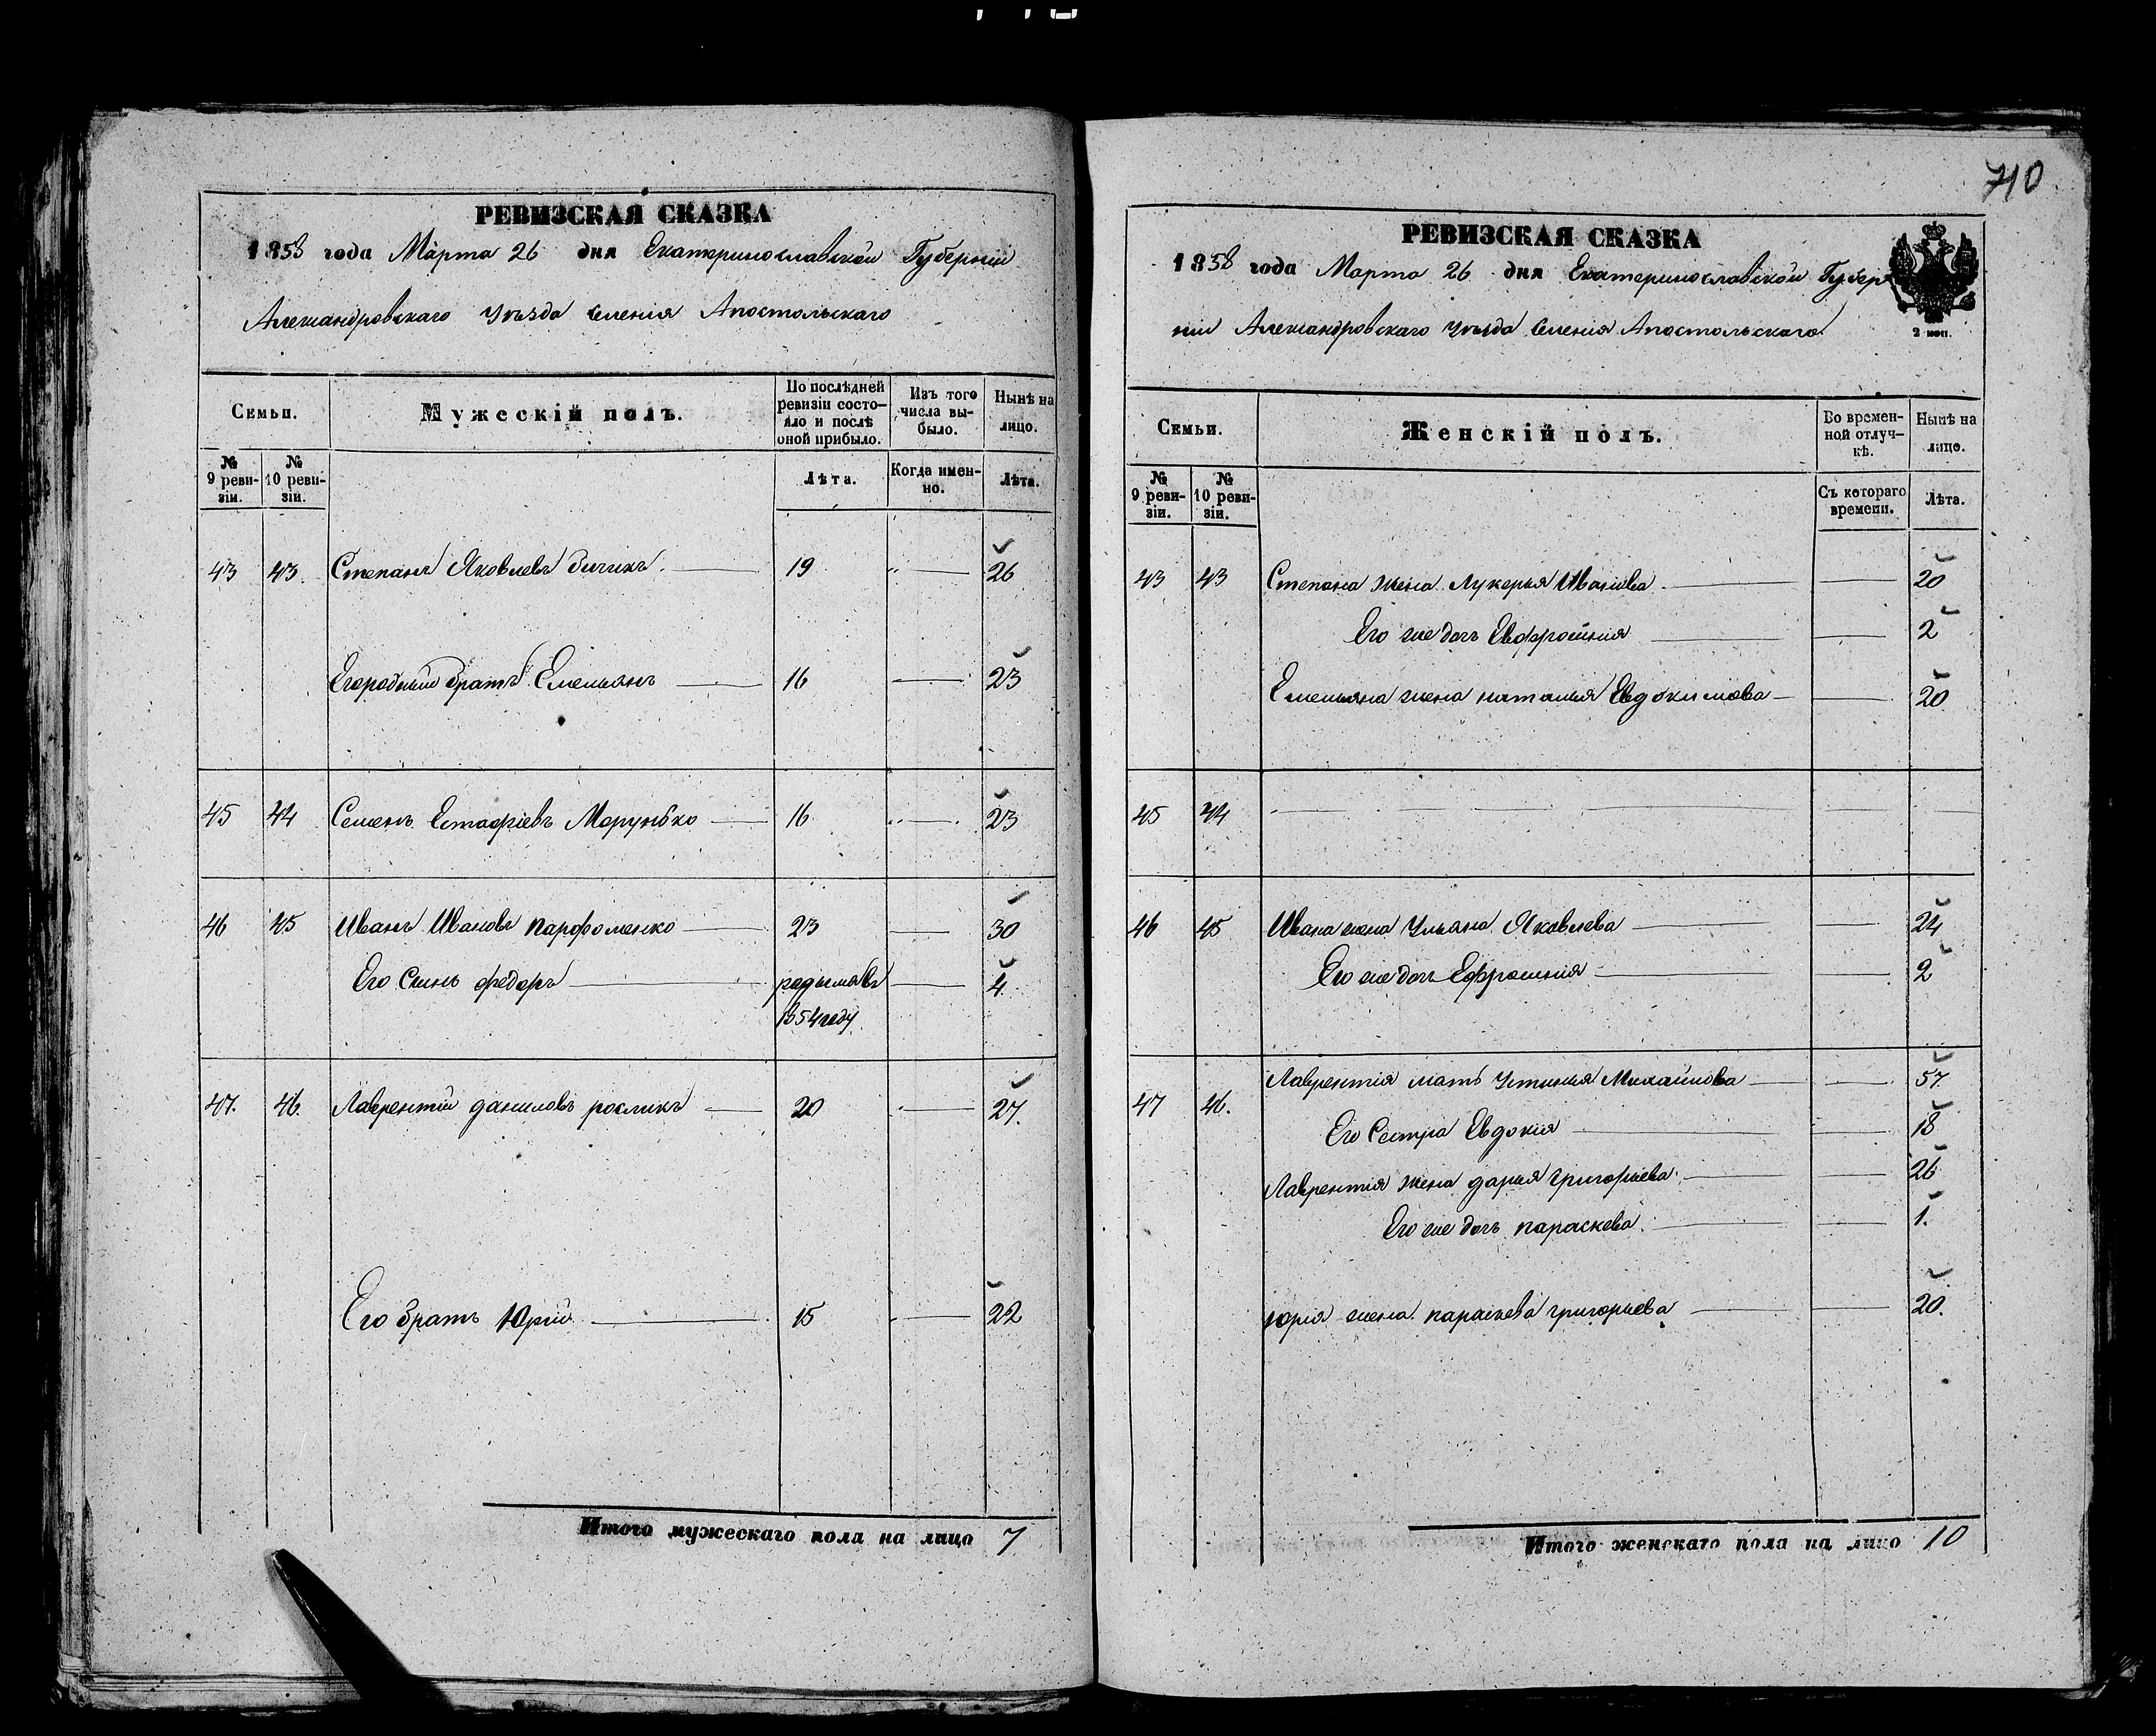 710
РЕВИЗСКАЯ СКАЗКА
1858 года Марта 26 дня Екатеринославской Губерніи
Александровскаго уѣзда селенія Апостольскаго
Семьи.
Мужескій полъ.
По послѣдней ревизіи состо-
яло и послѣ оной прибыло.
Изъ того числа вы-
было.
Нынѣ на лицо.
№ 9 реви-
зіи.
№ 10 реви-
зіи.
Лѣта.
Когда имен-
но.
Лѣта.
43 43. Степанъ Яковлевъ 19 26
Его родный братъ Емельянъ 16 23
45 44 Семенъ Естафіевъ 16 23
46 45 Иванъ Ивановъ Парфоменко 23 30
Его Сынъ Федоръ родился въ 4.
1854 году.
47. 46. Лаврентій Даниловъ росликъ 20 27.
Его братъ Юрій 15 22
Итого мужескаго пола на лицо 7
РЕВИЗСКАЯ СКАЗКА
1858 года Марта 26 дня Екатеринославской Губер
ніи Александровскаго уѣзда селенія Апостольскаго
2 коп.
Семьи.
Женскій полъ.
Во времен-
ной отлуч-
кѣ.
Нынѣ на лицо.
№ 9 реви-
зіи.
№ 10 реви-
зіи.
Съ котораго времени.
Лѣта.
43 43 Степана жена Лукерья Иванова 20
Его же дочь Евфросинія 2
Емельяна жена наталья Евдокимова 20
45 44
46 45 Ивана жена Ульяна Яковлева 24
Его же дочь Ефросинія 2
Лаврентія мать Устинья Михайлова 57
47 46. Его Сестра Евдокія 18
Лаврентія жена дарья григорьева 26
Его же дочь параскева. 1.
юрія жена параскева григорьева 20.
Итого женскаго пола на лицо 10